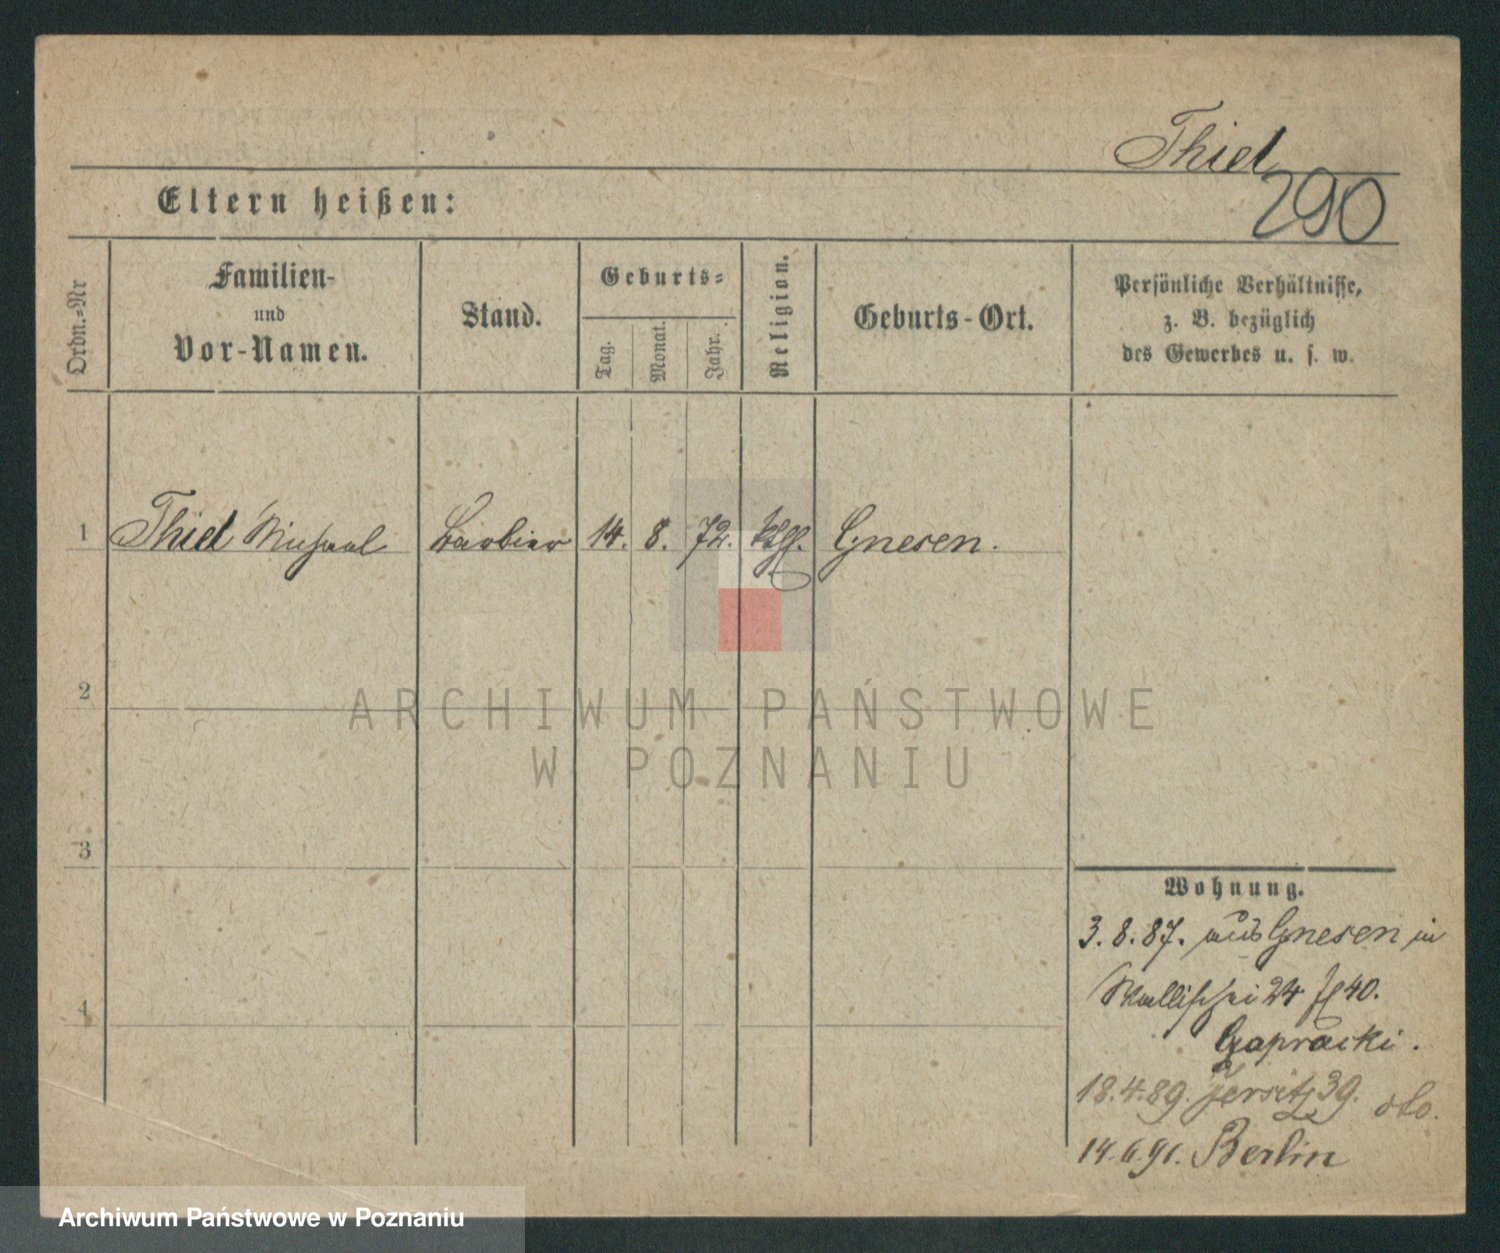 Thiel
290
Eltern heißen:
Ordn.-Nr
Familien-
und
Vor-Namen.
Stand.
Geburts-
Tag.
Monat.
Jahr.
Religion.
Geburts-Ort.
Persönliche Verhältnisse,
z. B. bezüglich
des Gewerbes u. s. w.
1 Thiel Michael Barbier 14. 8. 72. Gnesen.
2
3
4
ARCHIWUM PAŃSTWOWE
W POZNANIU
Wohnung.
3. 8. 87. aus Gnesen in
Wallischei 24 40.
18. 4. 89. Jersitz 39.
14. 6. 91. Berlin
Archiwum Państwowe w Poznaniu